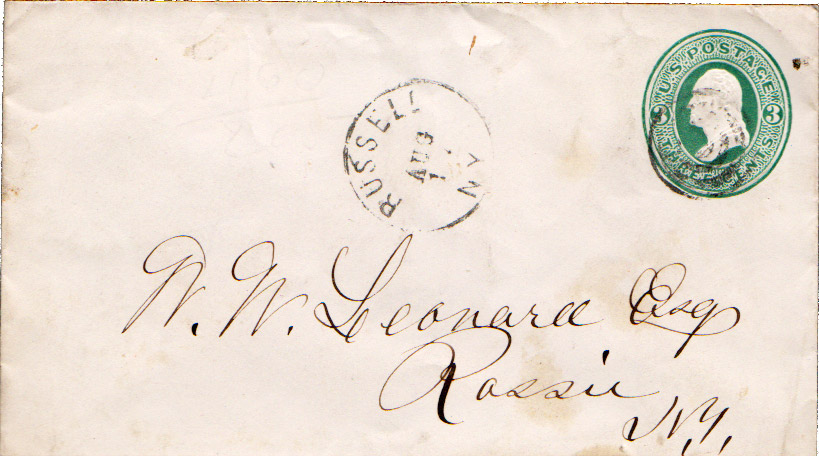 U.S. POSTAGE
3 3
THREE CENTS
RUSSELL N Y
AUG
W. W. Leonard Esq
Rossie
N.Y.